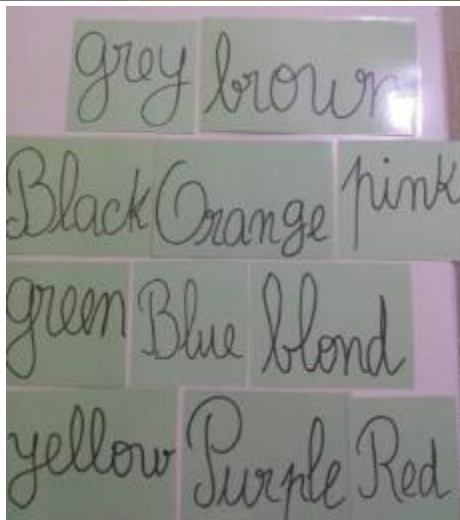 grey brown
Black Orange pink
green Blue blond
yellow Purple Red